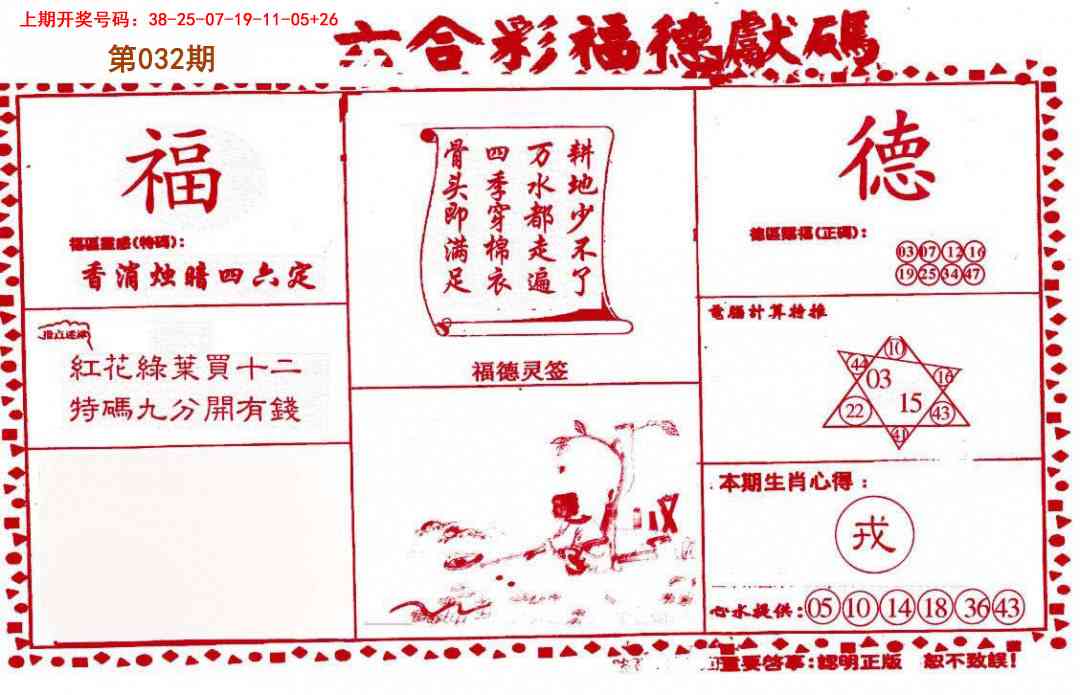 上期开奖号码：38-25-07-19-11-05+26
第032期
六合彩福德獻碼
福
福區靈感(特碼)：
香消烛暗四六定
紅花綠葉買十二
特碼九分開有錢
耕地少不了
万水都走遍
四季穿棉衣
骨头即满足
福德灵签
德
德區賜福(正碼)：
03 07 12 16
19 25 34 47
電腦計算特推
10
44
16
03
15
22
43
41
本期生肖心得：
戎
心水提供：05 10 14 18 36 43
重要啓事：認明正版 恕不致誤！